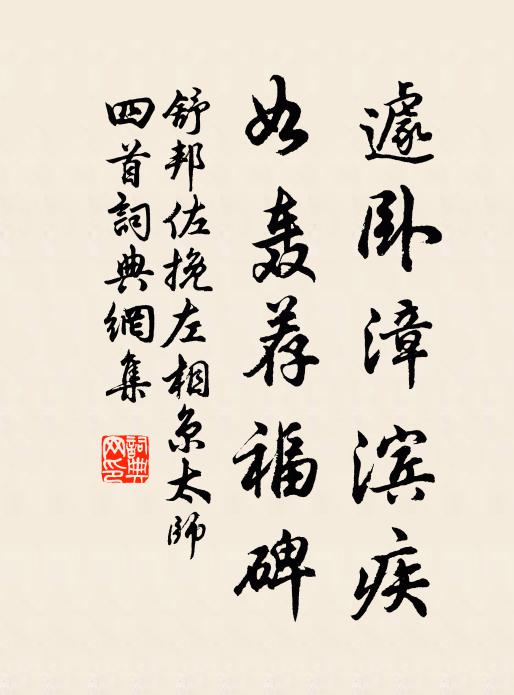 遽卧漳滨疾
如轰荐福碑
舒邦佐挽左相京太師
四首詞典網集
詞典网印